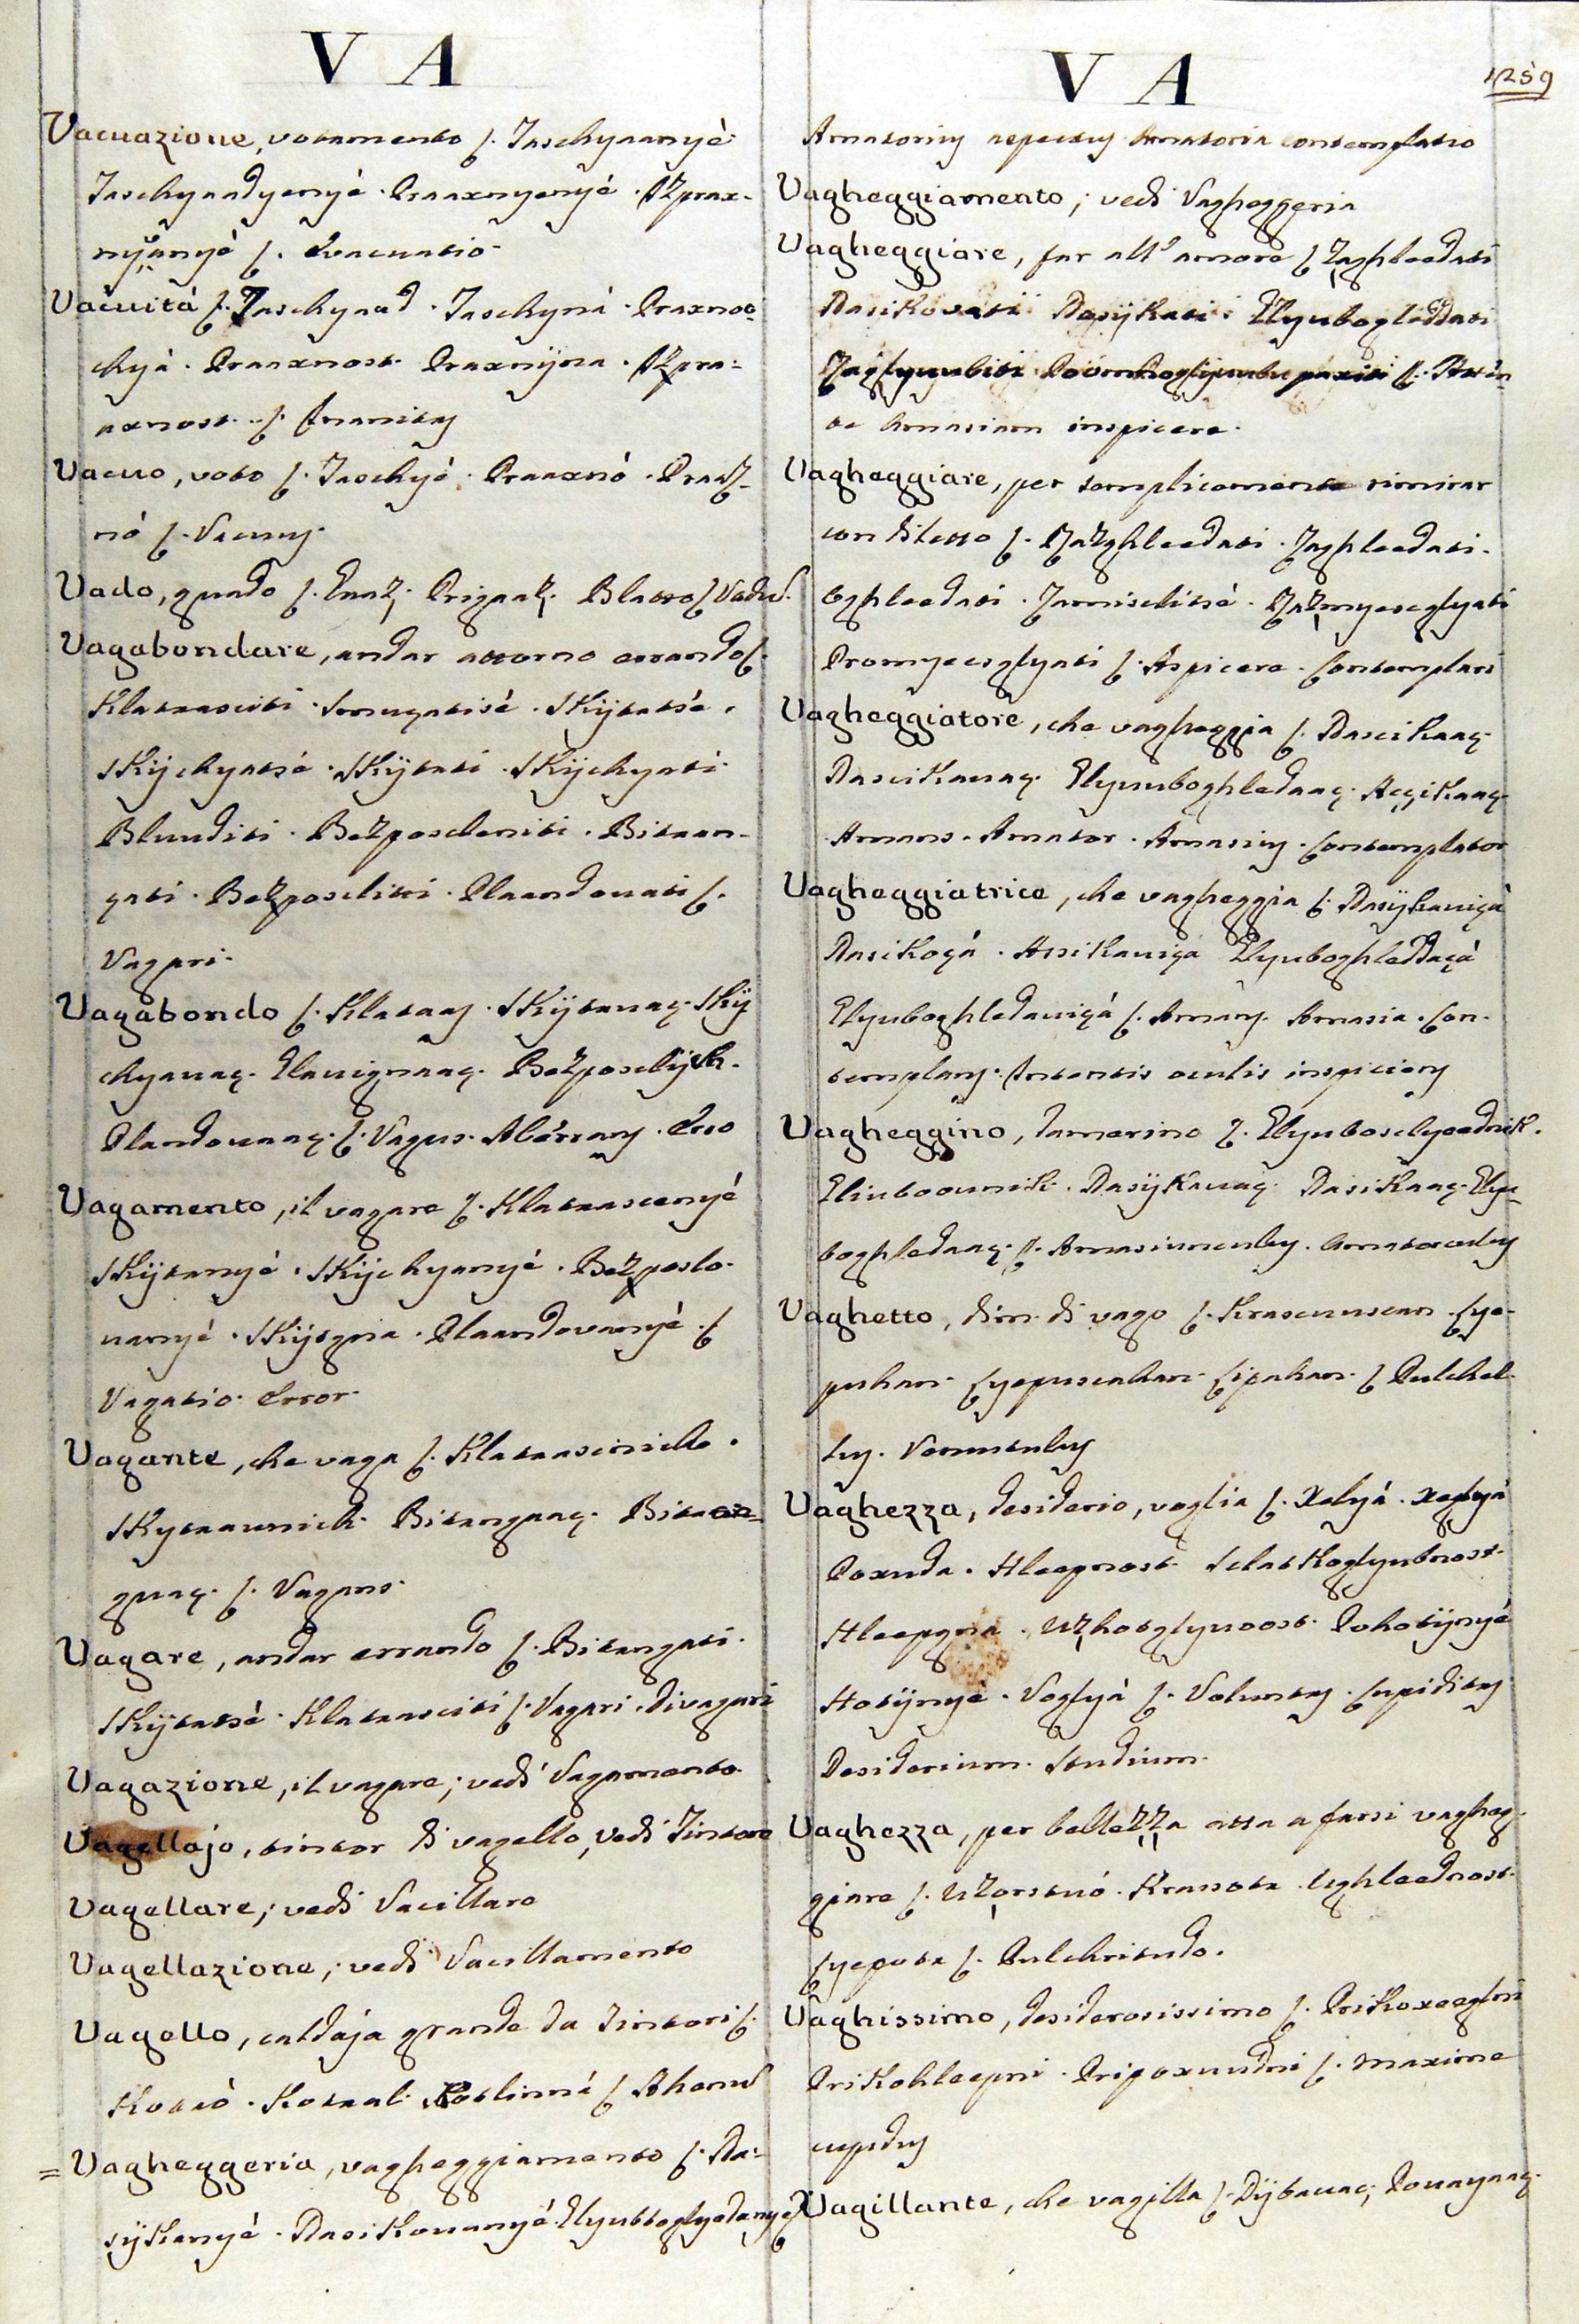 V A
Vacuazione, votamento ſ. Taschynanyè
Taschynadyenyé. Praaxnyenyé. Izprax-
nyanyé ſ. Evacuatio.
Vacuità ſ. Taschynad. Taschyná. Praxnoo-
chyá. Praaxnost. Praxnijna. Izpra-
axnost. ſ. Inanitas
Vacuo, voto ſ. Taschyé. Praaxnó. Praaz-
nó ſ. Vacuus.
Vado, guado ſ. Blatto ſ Vadum.
Vagabondare, andar attorno errando ſ.
Klataasciti. Smugatisé. Skijtatsé.
Skijchyatsé. Skijtati. Skijchyati.
Bluuditi. Bezposcleniti. Bitaan-
gati. Bezposcliti. Plaandouati ſ.
Vagari.
Vagabondo ſ. Klataas. Skijtauaç. Skij
chyauaç. Bezposclijk.
Plandouaaç. ſ. Vagus. Aberrans. Erro
Vagamento, il vagare ſ. Klataascenyé
Skijtanyé. Skijchyanyé. Bezposlo-
uanyé. Skijtgna. Plaandovanyé. ſ
Vagatio. Error.
Vagante, che vaga ſ. Klataascinich.
Skytaaunich. Bitangaaç. Bitaan=
guaç. ſ. Vagans.
Vagare, andar errando ſ. Bitangati.
Skijtatsé. Klataasciti ſ. Vagari. Divagari
Vagazione, il vagare; vedi Vagamento.
Vagellajo, tintor di vagello, vedi Tintore
Vagellare; vedi Vacillare
Vagellazione; vedi Vacillamento
Vagello, caldaja grande da Tintori ſ.
Kotaò. Kotaal. Kotlinné ſ Ahenum
= Vagheggeria, vagheggiamento ſ. Da-
sijkanyé. Dasikouanyé.
V A
1259
Amatorius aspectus Amatoria contemplatio
Vagheggiamento; vedi Vagheggeria
Vagheggiare, far all' amore ſ Zaghleedati
Dasikovati. Dasijkati. Glyubogleddati
Zaglyuubiti ſ. Atten-
te Amasiam inspicere.
Vagheggiare, per semplicemente rimirar
con diletto ſ. Razghleedati. Zaghleedati.
Oghleedati. Zamisclitsé. Razmyesclyati
Promyesclyati ſ. Aspicere. Contemplari
Vagheggiatore, che vagheggia ſ. Dascikaaç.
Dascikauaç. Glyuuboghledaaç. Açikaaç.
Amans. Amator. Amasius. Contemplator
Vagheggiatrice, che vagheggia ſ. Dasijkauiçà
Dasikoçá. Assikauiça Glyuboghleddaçá
Glyuboghledauiçá ſ. Amans. Amasia. Con-
templans. Intentis oculis inspiciens
Vagheggino, Damerino ſ. Glyuboselyeednik.
Gliuboounik. Dasijkauaç. Dasikaaç. Glyu-
boghledaaç. ſ. Amasiunculus. Amatorculus
Vaghetto, dim. di vago ſ. Krascuuscan. Lye-
puhan. Lyepuscahan. Lipahan. ſ Pulchel-
lus. Venustulus
Vaghezza, desiderio, voglia ſ. Xelyá. Xeglyá
Poxuda. Hleepnost. Slatkoglyubnost.
Hleepgna. Uzhotglyuoost. Pohotijnyé
Hotijnyé. Voglyá ſ. Voluntas. Cupiditas
Desiderium. Studium.
Vaghezza, per bellezza atta a farsi vagheg-
giare ſ. Uzorstuó. Krasota. Ughleednost.
Lyepota ſ. Pulchritudo.
Vaghissimo, desiderosissimo ſ. Prikoxeeglni
Prikohleepni. Pripoxuudni ſ. Maxime
cupidus
Vagillante, che vagilla ſ. Dijbauaç; Pouayaaç.